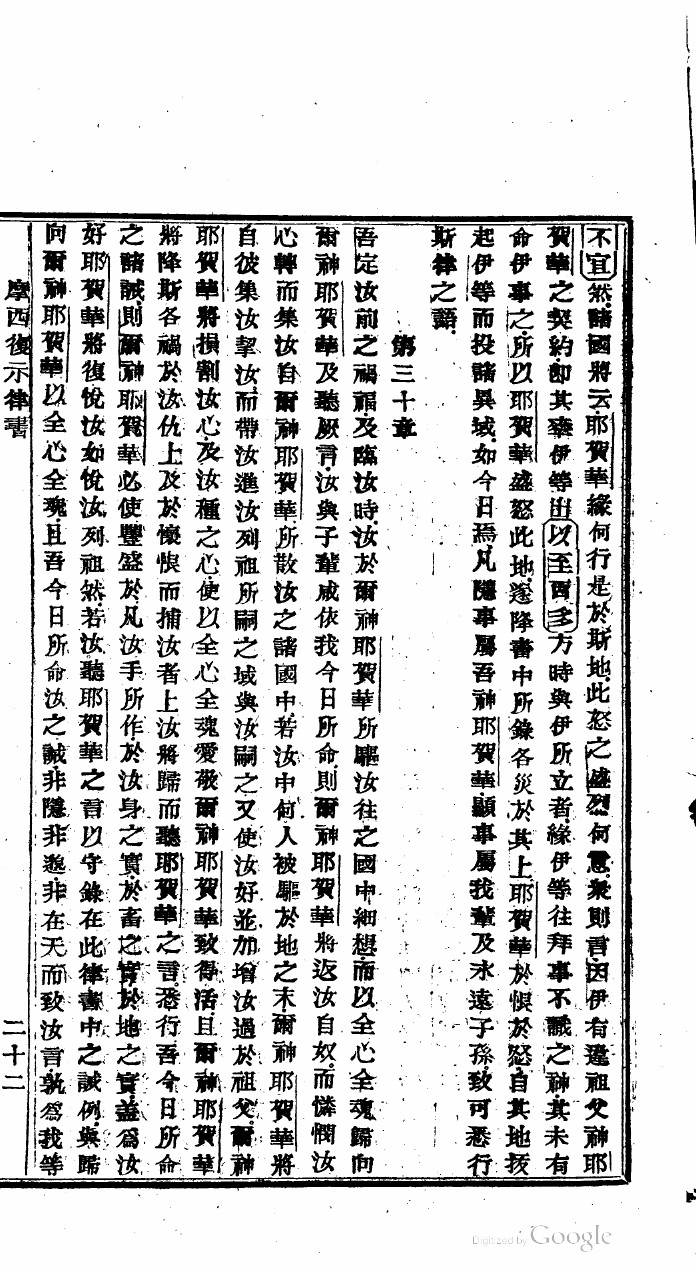 不宜然諸國將云耶賀華緣何行是於斯地此怒之盛烈何意衆則言因伊有違祖父神耶
賀華之契約卽其攜伊等出以至百多方時與伊所立者緣伊等往拜事不識之神其未有
命伊事之所以耶賀華盛怒此地遂降書中所錄各災於其上耶賀華於恨於怒自其地拔
起伊等而投諸異域如今日焉凡隱事屬吾神耶賀華顯事屬我輩及永遠子孫致可悉行
斯律之語
第三十章
吾定汝前之禍福及臨汝時汝於爾神耶賀華所驅汝往之國中細想而以全心全魂歸向
爾神耶賀華及聽厥言汝與子輩咸依我今日所命則爾神耶賀華將返汝自奴而憐憫汝
心轉而集汝自爾神耶賀華所散汝之諸國中若汝中何人被驅於地之末爾神耶賀華將
自彼集汝挈汝而帶汝進汝列祖所嗣之域與汝嗣之又使汝好並加增汝過於祖父爾神
耶賀華將損割汝心及汝種之心使以全心全魂愛敬爾神耶賀華致得活且爾神耶賀華
將降斯各禍於汝仇上及於懷恨而捕汝者上汝將歸而聽耶賀華之言悉行吾今日所命
之諸誡則爾神耶賀華必使豐盛於凡汝手所作於汝身之實於畜之實於地之實蓋爲汝
好耶賀華將復悅汝如悅汝列祖然若汝聽耶賀華之言以守錄在此律書中之誡例與歸
向爾神耶賀華以全心全魂且吾今日所命汝之誡非隱非邈非在天而致汝言孰爲我等
摩西復示律書 二十二
Digitized by Google